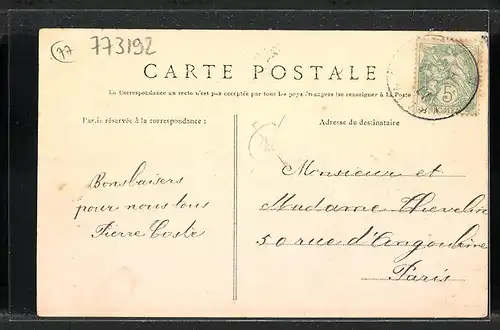 77
773192
CARTE POSTALE
La Correspondance au recto n'est pas acceptée par tous les pays étrangers (se renseigner à la Poste
Partie réservée à la correspondance :
Adresse de destinataire
5c
Bons baisers
pour nous tous
Pierre Coste
Monsieur et
Madame
50 rue d'Angoulême
Paris